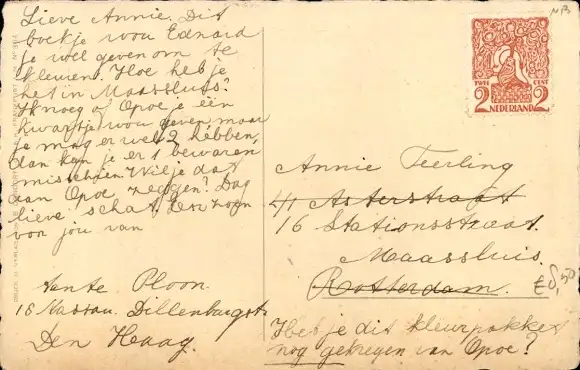 Lieve Annie. Dit
boekje wou Ednard
je wel geven om te
kleuren. Hoe heb je
het in Maassluis?
Ik vroeg of Opoe je één
kwartje wou geven, maar
je mag er wel 2 hebben,
dan kan je er 1 bewaren
misschien. Wil je dat
aan Opoe zeggen? Dag
lieve schat. Een zoen
voor jou van
Tante Ploon
18 Nassau Dillenburgst.
Den Haag.
NB
TWEE CENT
2 NEDERLAND 2
Annie Teerling
41 Asterstraat
16 Stationsstraat.
Maassluis.
Rotterdam.
£8,50
Heb je dit kleurpakket
nog gekregen van Opoe?